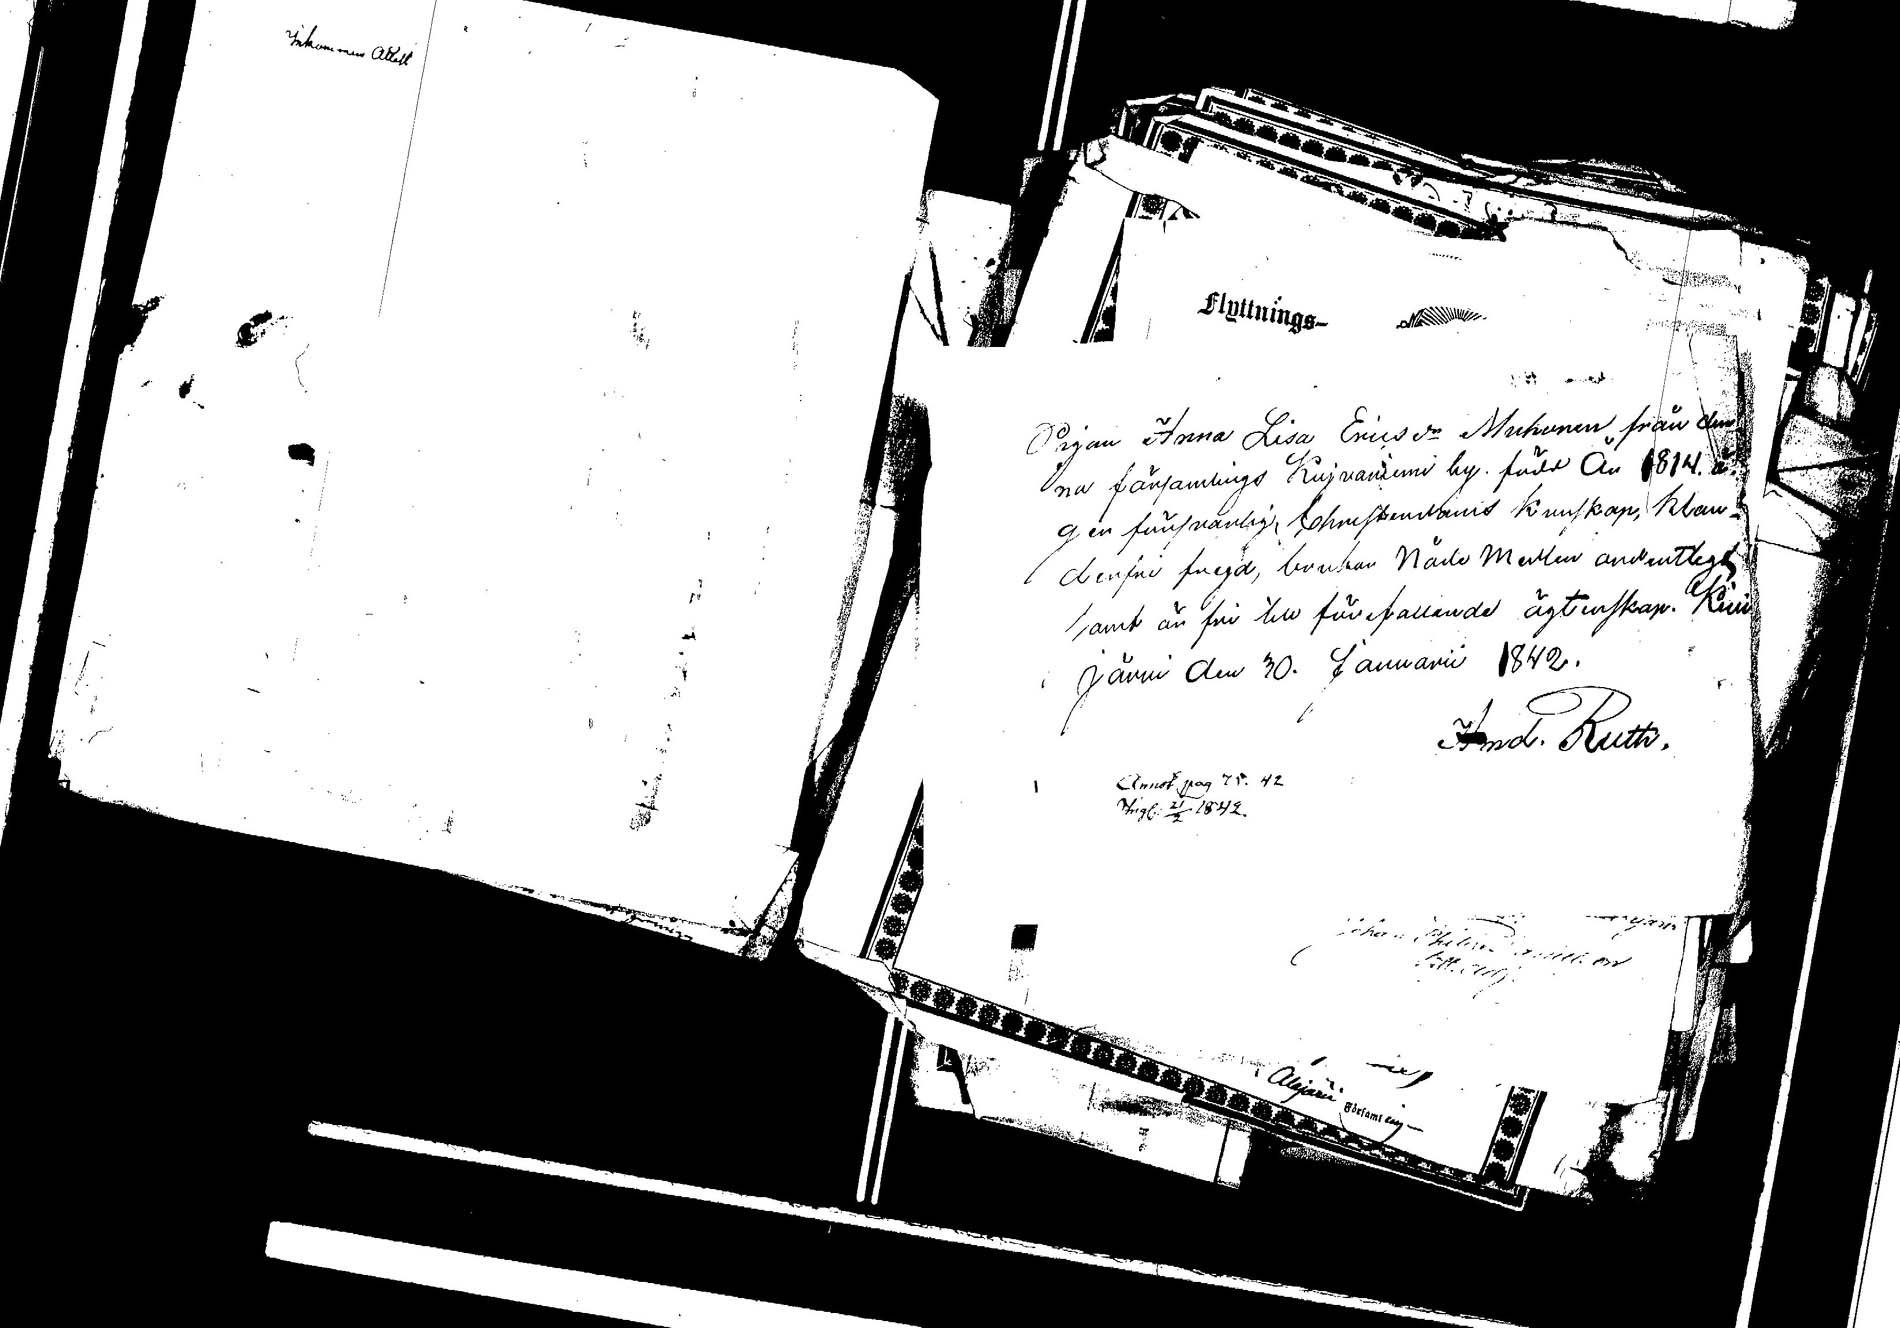 Inkommna Attest
Flyttnings-
Pigan Anna Lisa Ericsdr Muhonen från den
na församlings Kujvaniemi by. född År 1814. ä-
ger försvarlig Christendoms kunskap, klan-
derfri fregd, brukar Nåde Medlen ordentligt
samt är fri till förefallande ägtenskap. Kivi
järvi den 30. Januarii 1842.
And. Ruth.
Annot. pag 75. 42
Ingf. 21/2 1842.
Alajärvi Församling